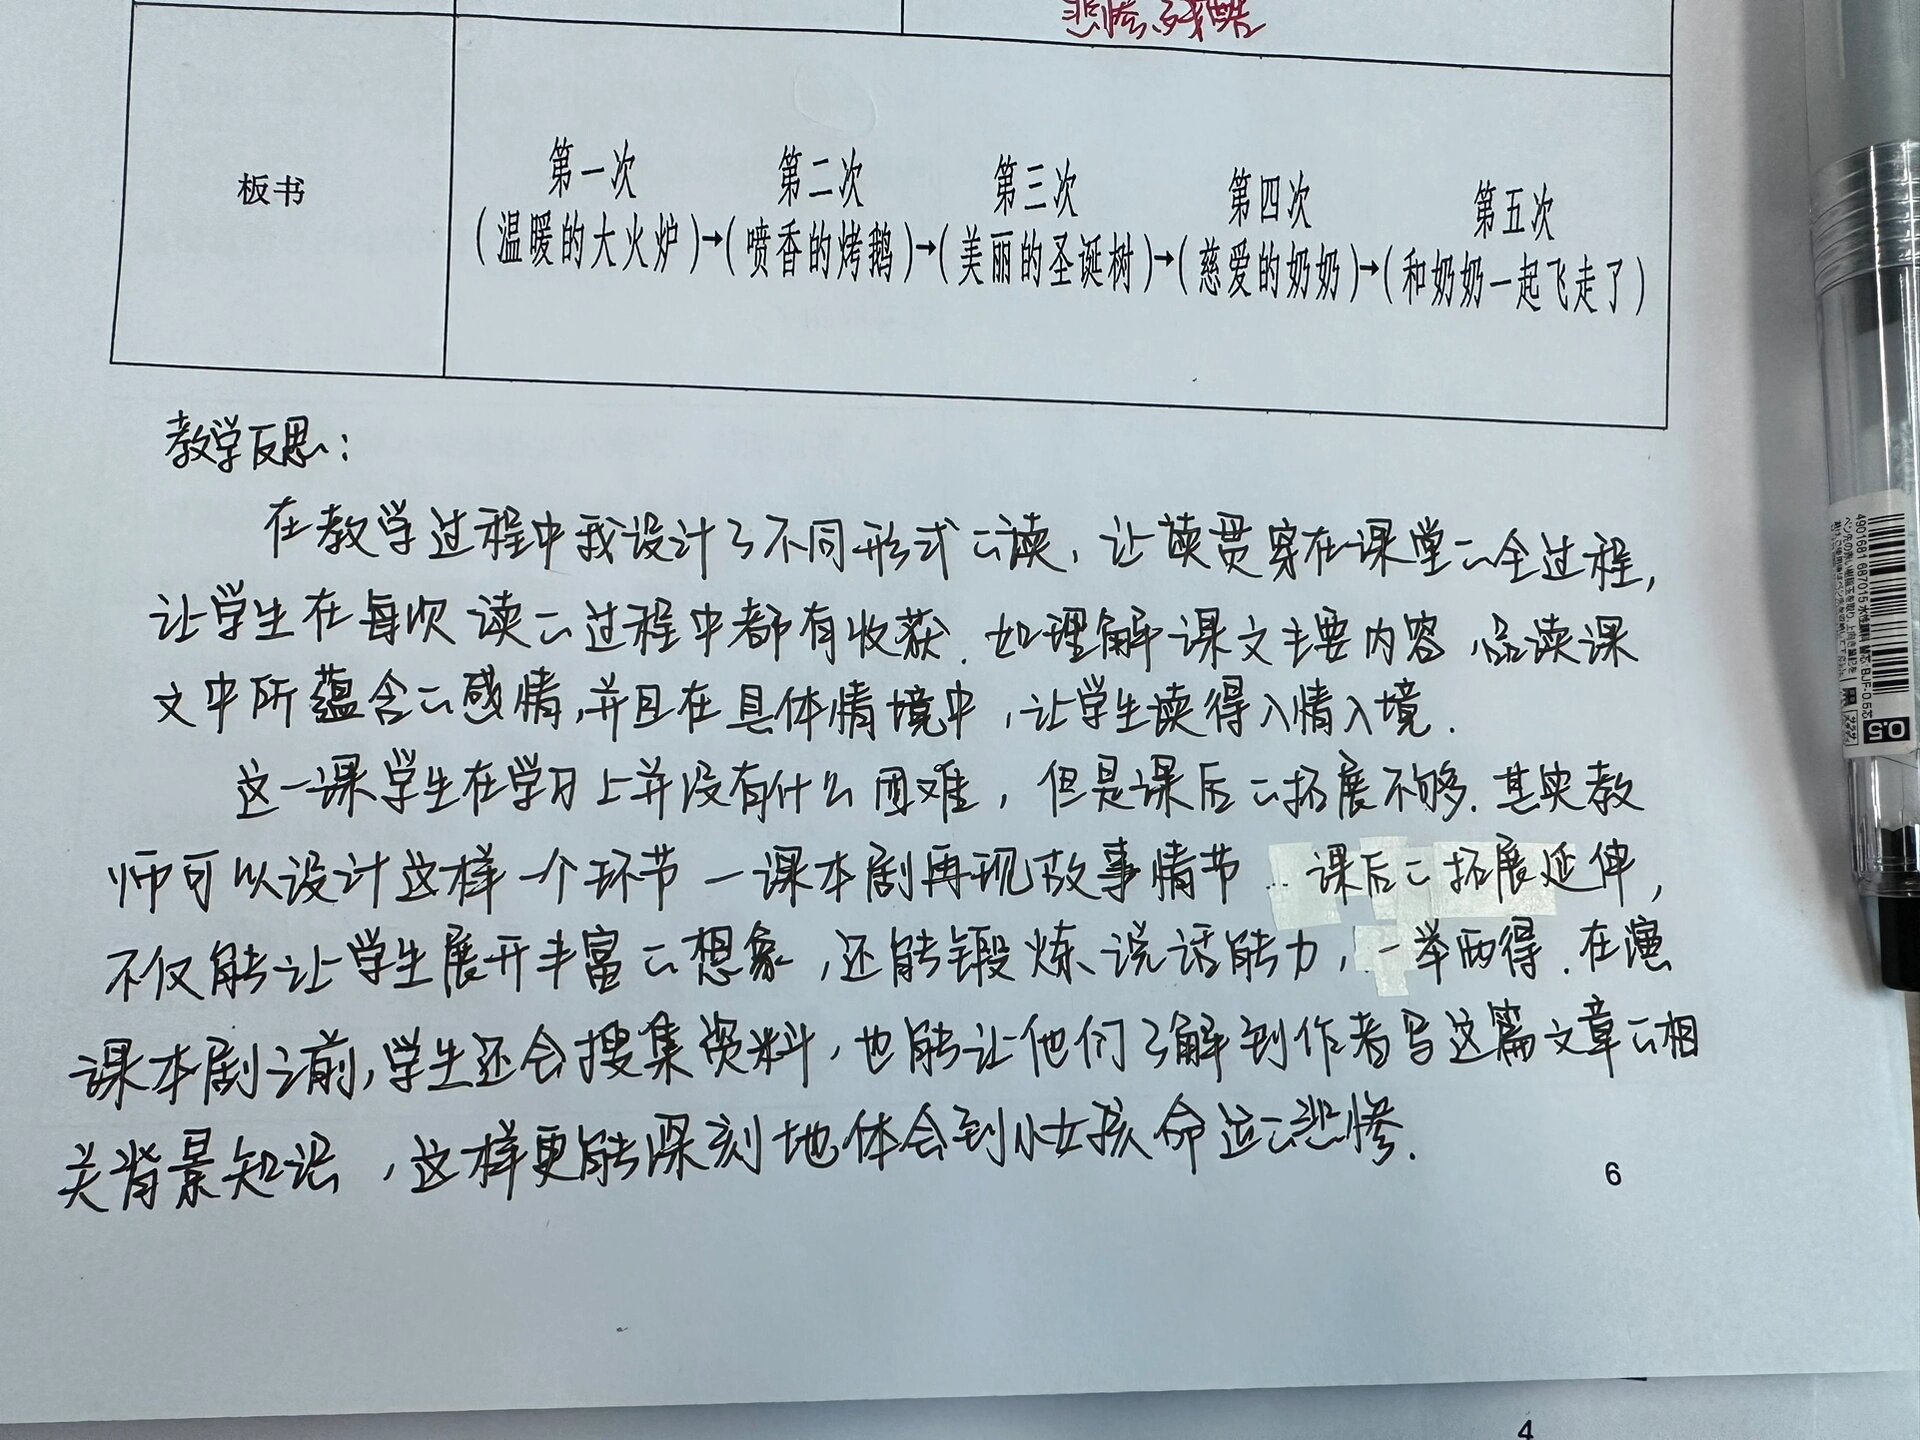 悲惨、残酷
板书
第一次 第二次 第三次 第四次 第五次
(温暖的大火炉)→(喷香的烤鹅)→(美丽的圣诞树)→(慈爱的奶奶)→(和奶奶一起飞走了)
教学反思:
在教学过程中我设计了不同形式的读,让读贯穿在课堂的全过程,
让学生在每次读的过程中都有收获.如理解课文主要内容,品读课
文中所蕴含的感情,并且在具体情境中,让学生读得入情入境.
这一课学生在学习上并没有什么困难,但是课后的拓展不够.其实教
师可以设计这样一个环节一课本剧再现故事情节...课后的拓展延伸,
不仅能让学生展开丰富的想象,还能锻炼说话能力,一举两得.在演
课本剧之前,学生还会搜集资料,也能让他们了解到作者写这篇文章的相
关背景知识,这样更能深刻地体会到小女孩命运的悲惨.
6
4901681 687015
水性顔料
BJF-0.5芯
0.5
4